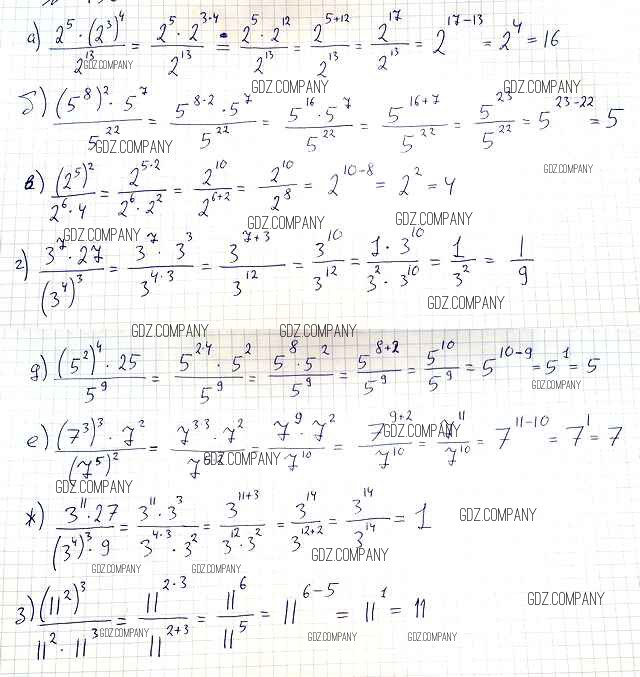 а) (2⁵ · (2³)⁴)/2¹³ = (2⁵ · 2³·⁴)/2¹³ = (2⁵ · 2¹²)/2¹³ = 2⁵⁺¹²/2¹³ = 2¹⁷/2¹³ = 2¹⁷⁻¹³ = 2⁴ = 16
GDZ.COMPANY
GDZ.COMPANY GDZ.COMPANY
б) ((5⁸)² · 5⁷)/5²² = (5⁸·² · 5⁷)/5²² = (5¹⁶ · 5⁷)/5²² = 5¹⁶⁺⁷/5²² = 5²³/5²² = 5²³⁻²² = 5
GDZ.COMPANY
GDZ.COMPANY
в) (2⁵)²/(2⁶ · 4) = 2⁵·²/(2⁶ · 2²) = 2¹⁰/2⁶⁺² = 2¹⁰/2⁸ = 2¹⁰⁻⁸ = 2² = 4
GDZ.COMPANY GDZ.COMPANY GDZ.COMPANY
г) (3⁷ · 27)/(3⁴)³ = (3⁷ · 3³)/3⁴·³ = 3⁷⁺³/3¹² = 3¹⁰/3¹² = (1 · 3¹⁰)/(3² · 3¹⁰) = 1/3² = 1/9
GDZ.COMPANY
GDZ.COMPANY GDZ.COMPANY
д) ((5²)⁴ · 25)/5⁹ = (5²·⁴ · 5²)/5⁹ = (5⁸ · 5²)/5⁹ = 5⁸⁺²/5⁹ = 5¹⁰/5⁹ = 5¹⁰⁻⁹ = 5¹ = 5
GDZ.COMPANY
е) ((7³)³ · 7²)/(7⁵)² = (7³·³ · 7²)/7⁵·² = (7⁹ · 7²)/7¹⁰ = 7⁹⁺²/7¹⁰ = 7¹¹/7¹⁰ = 7¹¹⁻¹⁰ = 7¹ = 7
GDZ.COMPANY
GDZ.COMPANY
GDZ.COMPANY
ж) (3¹¹ · 27)/((3⁴)³ · 9) = (3¹¹ · 3³)/(3⁴·³ · 3²) = 3¹¹⁺³/(3¹² · 3²) = 3¹⁴/3¹²⁺² = 3¹⁴/3¹⁴ = 1
GDZ.COMPANY
GDZ.COMPANY
GDZ.COMPANY GDZ.COMPANY
з) (11²)³/(11² · 11³) = 11²·³/11²⁺³ = 11⁶/11⁵ = 11⁶⁻⁵ = 11¹ = 11
GDZ.COMPANY
GDZ.COMPANY GDZ.COMPANY GDZ.COMPANY